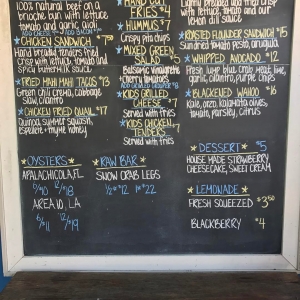 100% natural beef on a
brioche bun with lettuce
tomato and garlic aioli
ADD CHEESE
ADD BACON
★ CHICKEN SANDWICH
Hand breaded tenders fried
crisp with lettuce tomato and
spicy buttermilk sauce
★ FRIED MAHI MAHI TACOS $13
Green chili crema, cabbage
slaw, cilantro
★ CHICKEN FRIED QUAIL $17
Quinoa, summer squash,
espelette + thyme honey
HAND CUT
FRIES $4
★ HUMMUS $7
Crispy pita chips
★ MIXED GREEN
SALAD $5
Balsamic vinaigrette
cherry tomatoes
★ KIDS GRILLED
CHEESE $7
Served with fries
★ KIDS CHICKEN $7
TENDERS
Served with fries
Lightly breaded and fried crisp
with lettuce, tomato and our
lemon dill sauce
★ ROASTED FLOUNDER SANDWICH $15
Sundried tomato pesto, arugula
★ WHIPPED AVOCADO $12
Fresh jump blue crab meat, lime,
garlic, cilantro, crispy pita chips
★ BLACKENED WAHOO $16
Kale, orzo, kalamata olives,
tomato, parsley, citrus
★ OYSTERS ★
APALACHICOLA, FL
6/$10 12/$18
AREA 10, LA
6/$11 12/$19
★ RAW BAR ★
SNOW CRAB LEGS
1/2# $12 1# $22
★ DESSERT ★ $5
HOUSE MADE STRAWBERRY
CHEESECAKE, SWEET CREAM
★ LEMONADE ★
FRESH SQUEEZED $3.50
BLACKBERRY $4